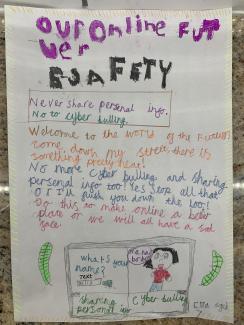 our online futur
ver
ESAFETY
Never share personal info.
No to cyber bulling.
Welcome to the world of the future
come down my street there is
something pretty neat!
No more cyber bulling and sharing
personal info too! Yes stop all that
or I'll push you down the loo!
Do this to make online a better
place or we will all have a sad
face.
whats your
name?
Text
Sharing
personal info
Cyber bulling